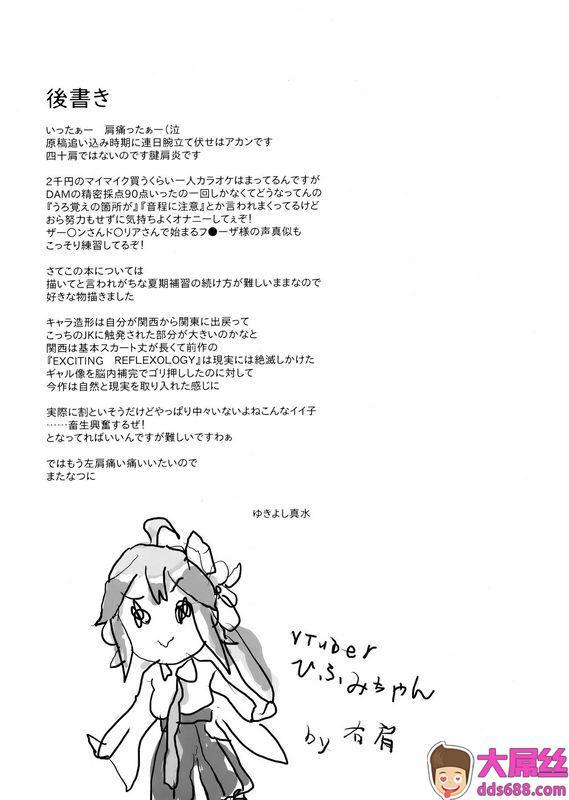 後書き
いったぁー　肩痛ったぁー(泣
原稿追い込み時期に連日腕立て伏せはアカンです
四十肩ではないのです腱肩炎です
2千円のマイマイク買うくらい一人カラオケはまってるんですが
DAMの精密採点90点いったの一回しかなくてどうなってんの
『うろ覚えの箇所が』『音程に注意』とか言われまくってるけど
おら努力もせずに気持ちよくオナニーしてぇぞ!
ザー〇ンさんド〇リアさんで始まるフ●ーザ様の声真似も
こっそり練習してるぞ!
さてこの本については
描いてと言われがちな夏期補習の続け方が難しいままなので
好きな物描きました
キャラ造形は自分が関西から関東に出戻って
こっちのJKに触発された部分が大きいのかなと
関西は基本スカート丈が長くて前作の
『EXCITING　REFLEXOLOGY』は現実には絶滅しかけた
ギャル像を脳内補完でゴリ押ししたのに対して
今作は自然と現実を取り入れた感じに
実際に割といそうだけどやっぱり中々いないよねこんなイイ子
……畜生興奮するぜ!
となってればいいんですが難しいですわぁ
ではもう左肩痛い痛いいたいので
またなつに
ゆきよし真水
VTuber
ひふみちゃん
by 右肩
大屌丝
dds688.com